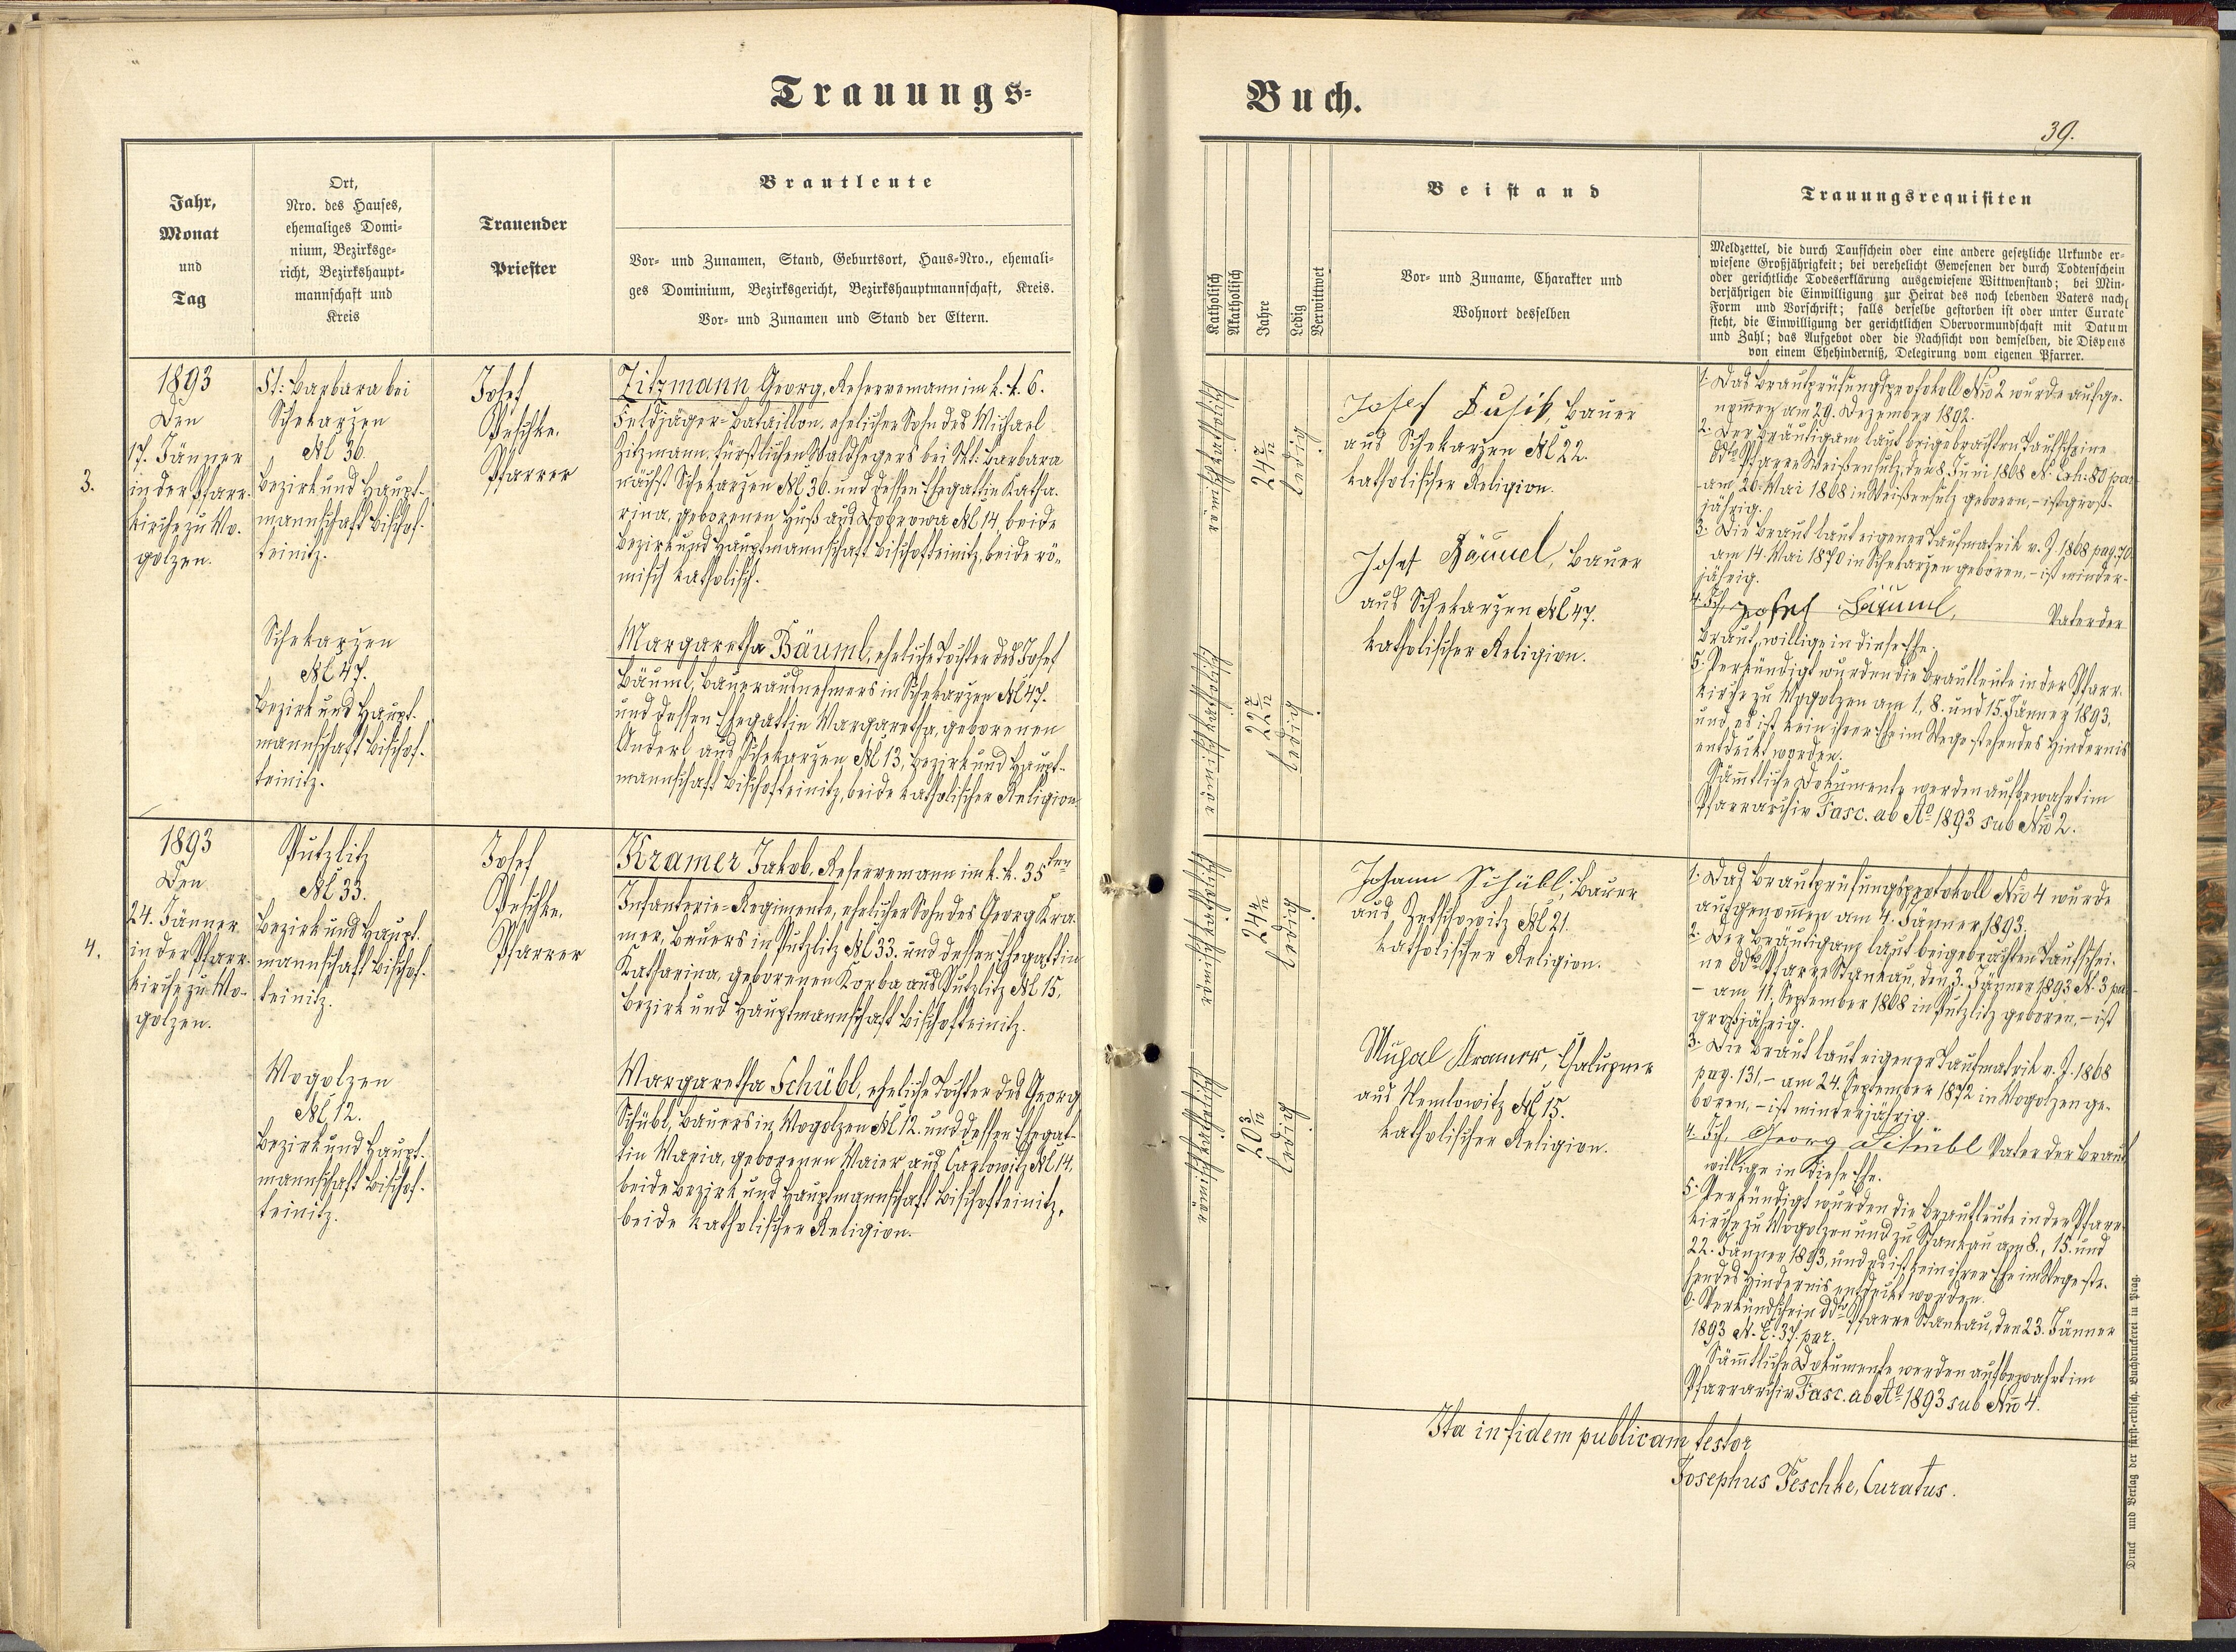 Trauungs-
Buch.
39.
Jahr,
Monat
und
Tag
Ort,
Nro. des Hauses,
ehemaliges Domi-
nium, Bezirksge-
richt, Bezirkshaupt-
mannschaft und
Kreis
Trauender
Priester
Brautleute
Vor- und Zunamen, Stand, Geburtsort, Haus-Nro., ehemali-
ges Dominium, Bezirksgericht, Bezirkshauptmannschaft, Kreis.
Vor- und Zunamen und Stand der Eltern.
Katholisch
Akatholisch
Jahre
Ledig
Verwittwet
Beistand
Vor- und Zuname, Charakter und
Wohnort desselben
Trauungsrequisiten
Meldzettel, die durch Taufschein oder eine andere gesetzliche Urkunde er-
wiesene Großjährigkeit; bei verehelicht Gewesenen der durch Todtenschein
oder gerichtliche Todeserklärung ausgewiesene Wittwenstand; bei Min-
derjährigen die Einwilligung zur Heirat des noch lebenden Vaters nach
Form und Vorschrift; falls derselbe gestorben ist oder unter Curate
steht, die Einwilligung der gerichtlichen Obervormundschaft mit Datum
und Zahl; das Aufgebot oder die Nachsicht von demselben, die Dispens
von einem Ehehinderniß, Delegirung vom eigenen Pfarrer.
3.
1893
Den
17. Jänner
in der Pfarr-
kirche zu Mo-
golzen.
St: Barbara bei
Schekarzen
№ 36.
Bezirk und Haupt-
mannschaft Bischof-
teinitz.
Schekarzen
№ 47.
Bezirk und Haupt-
mannschaft Bischof-
teinitz.
Josef
Peschke,
Pfarrer
Zitzmann Georg, Reservemann im k. k. 6.
Feldjäger-Bataillon, ehelicher Sohn des Michael
Zitzmann, fürstlichen Waldhegers bei St: Barbara
nächst Schekarzen № 36. und dessen Ehegattin Katha-
rina, geborenen Huß aus Dobrowa № 14, beide
Bezirk und Hauptmannschaft Bischofteinitz, beide rö-
misch katholisch.
Margaretha Bäuml, eheliche Tochter des Josef
Bäuml, Bauerausnehmers in Schekarzen № 47.
und dessen Ehegattin Margaretha, geborenen
Anderl aus Schekarzen № 13, Bezirk und Haupt-
mannschaft Bischofteinitz, beide katholischer Religion
römisch katholisch
24 7/12
ledig
römisch katholisch
22 7/12
ledig
Josef Dusik, Bauer
aus Schekarzen № 22.
katholischer Religion.
Josef Bäuml, Bauer
aus Schekarzen № 47.
katholischer Religion.
1. Das Brautprüfungsprotokoll Nro 2 wurde aufge-
nomen am 29. Dezember 1892.
2. Der Bräutigam laut beigebrachten Taufscheine
ddto Pfarre Weißensulz, den 8. Juni 1868 N. Exh. 80 par
am 20. Mai 1868 in Weißensulz geboren, - ist groß-
jährig.
3. Die Braut laut eigener Taufmatrik v. J. 1868 pag. 70
am 14. Mai 1870 in Schekarzen geboren, - ist minder-
jährig.
4. Ich, Josef Bäuml, Vater der
Braut, willige in diese Ehe.
5. Verkündigt wurden die Brautleute in der Pfarr-
kirche zu Mogolzen am 1., 8. und 15. Jänner 1893,
und es ist kein ihrer Ehe im Wege stehendes Hindernis
entdeckt worden.
Sämtliche Dokumente werden aufbewahrt im
Pfarrarchiv Fasc. ab Ao 1893 sub Nro 2.
4.
1893
Den
24. Jänner
in der Pfarr-
kirche zu Mo-
golzen.
Putzlitz
№ 33.
Bezirk und Haupt-
mannschaft Bischof-
teinitz.
Mogolzen
№ 12.
Bezirk und Haupt-
mannschaft Bischof-
teinitz.
Josef
Peschke,
Pfarrer
Kramer Jakob, Reservemann im k. k. 35ten
Infanterie-Regimente, ehelicher Sohn des Georg Kra-
mer, Bauers in Putzlitz № 33. und dessen Ehegattin
Katharina, geborenen Korba aus Putzlitz № 15,
Bezirk und Hauptmannschaft Bischofteinitz.
Margaretha Schübl, eheliche Tochter des Georg
Schübl, Bauers in Mogolzen № 12. und dessen Ehegat-
tin Maria, geborenen Maier aus Carlowitz № 14,
beide Bezirk und Hauptmannschaft Bischofteinitz,
beide katholischer Religion.
römisch katholisch
24 4/12
ledig
römisch katholisch
20 3/12
ledig
Johann Schübl, Bauer
aus Zetschowitz № 21.
katholischer Religion.
Kramer, Chalupner
aus Nemlowitz № 15.
katholischer Religion.
1. Das Brautprüfungsprotokoll Nro 4 wurde
aufgenomen am 4. Jänner 1893.
2. Der Bräutigam laut beigebrachten Taufschei-
ne ddto Pfarre Stankau, den 3. Jänner 1893 N. 3 par
- am 11. September 1868 in Putzlitz geboren, - ist
großjährig.
3. Die Braut laut eigener Taufmatrik v. J. 1868
pag. 131, - am 24. September 1872 in Mogolzen ge-
boren, - ist minderjährig.
4. Ich, Georg Schübl Vater der Braut
willige in diese Ehe.
5. Verkündigt wurden die Brautleute in der Pfarr-
kirche zu Mogolzen und zu Stankau am 8., 15. und
22. Jänner 1893, und es ist kein ihrer Ehe im Wege ste-
hendes Hindernis entdeckt worden.
6. Verkündschein ddto Pfarre Stankau, den 23. Jänner
1893 N. E. 37. par.
Sämtliche Dokumente werden aufbewahrt im
Pfarrarchiv Fasc. ab Ao 1893 sub Nro 4.
Ita in fidem publicam testor
Josephus Peschke, Curatus.
Druck und Verlag der fürst-erzbisch. Buchdruckerei in Prag.